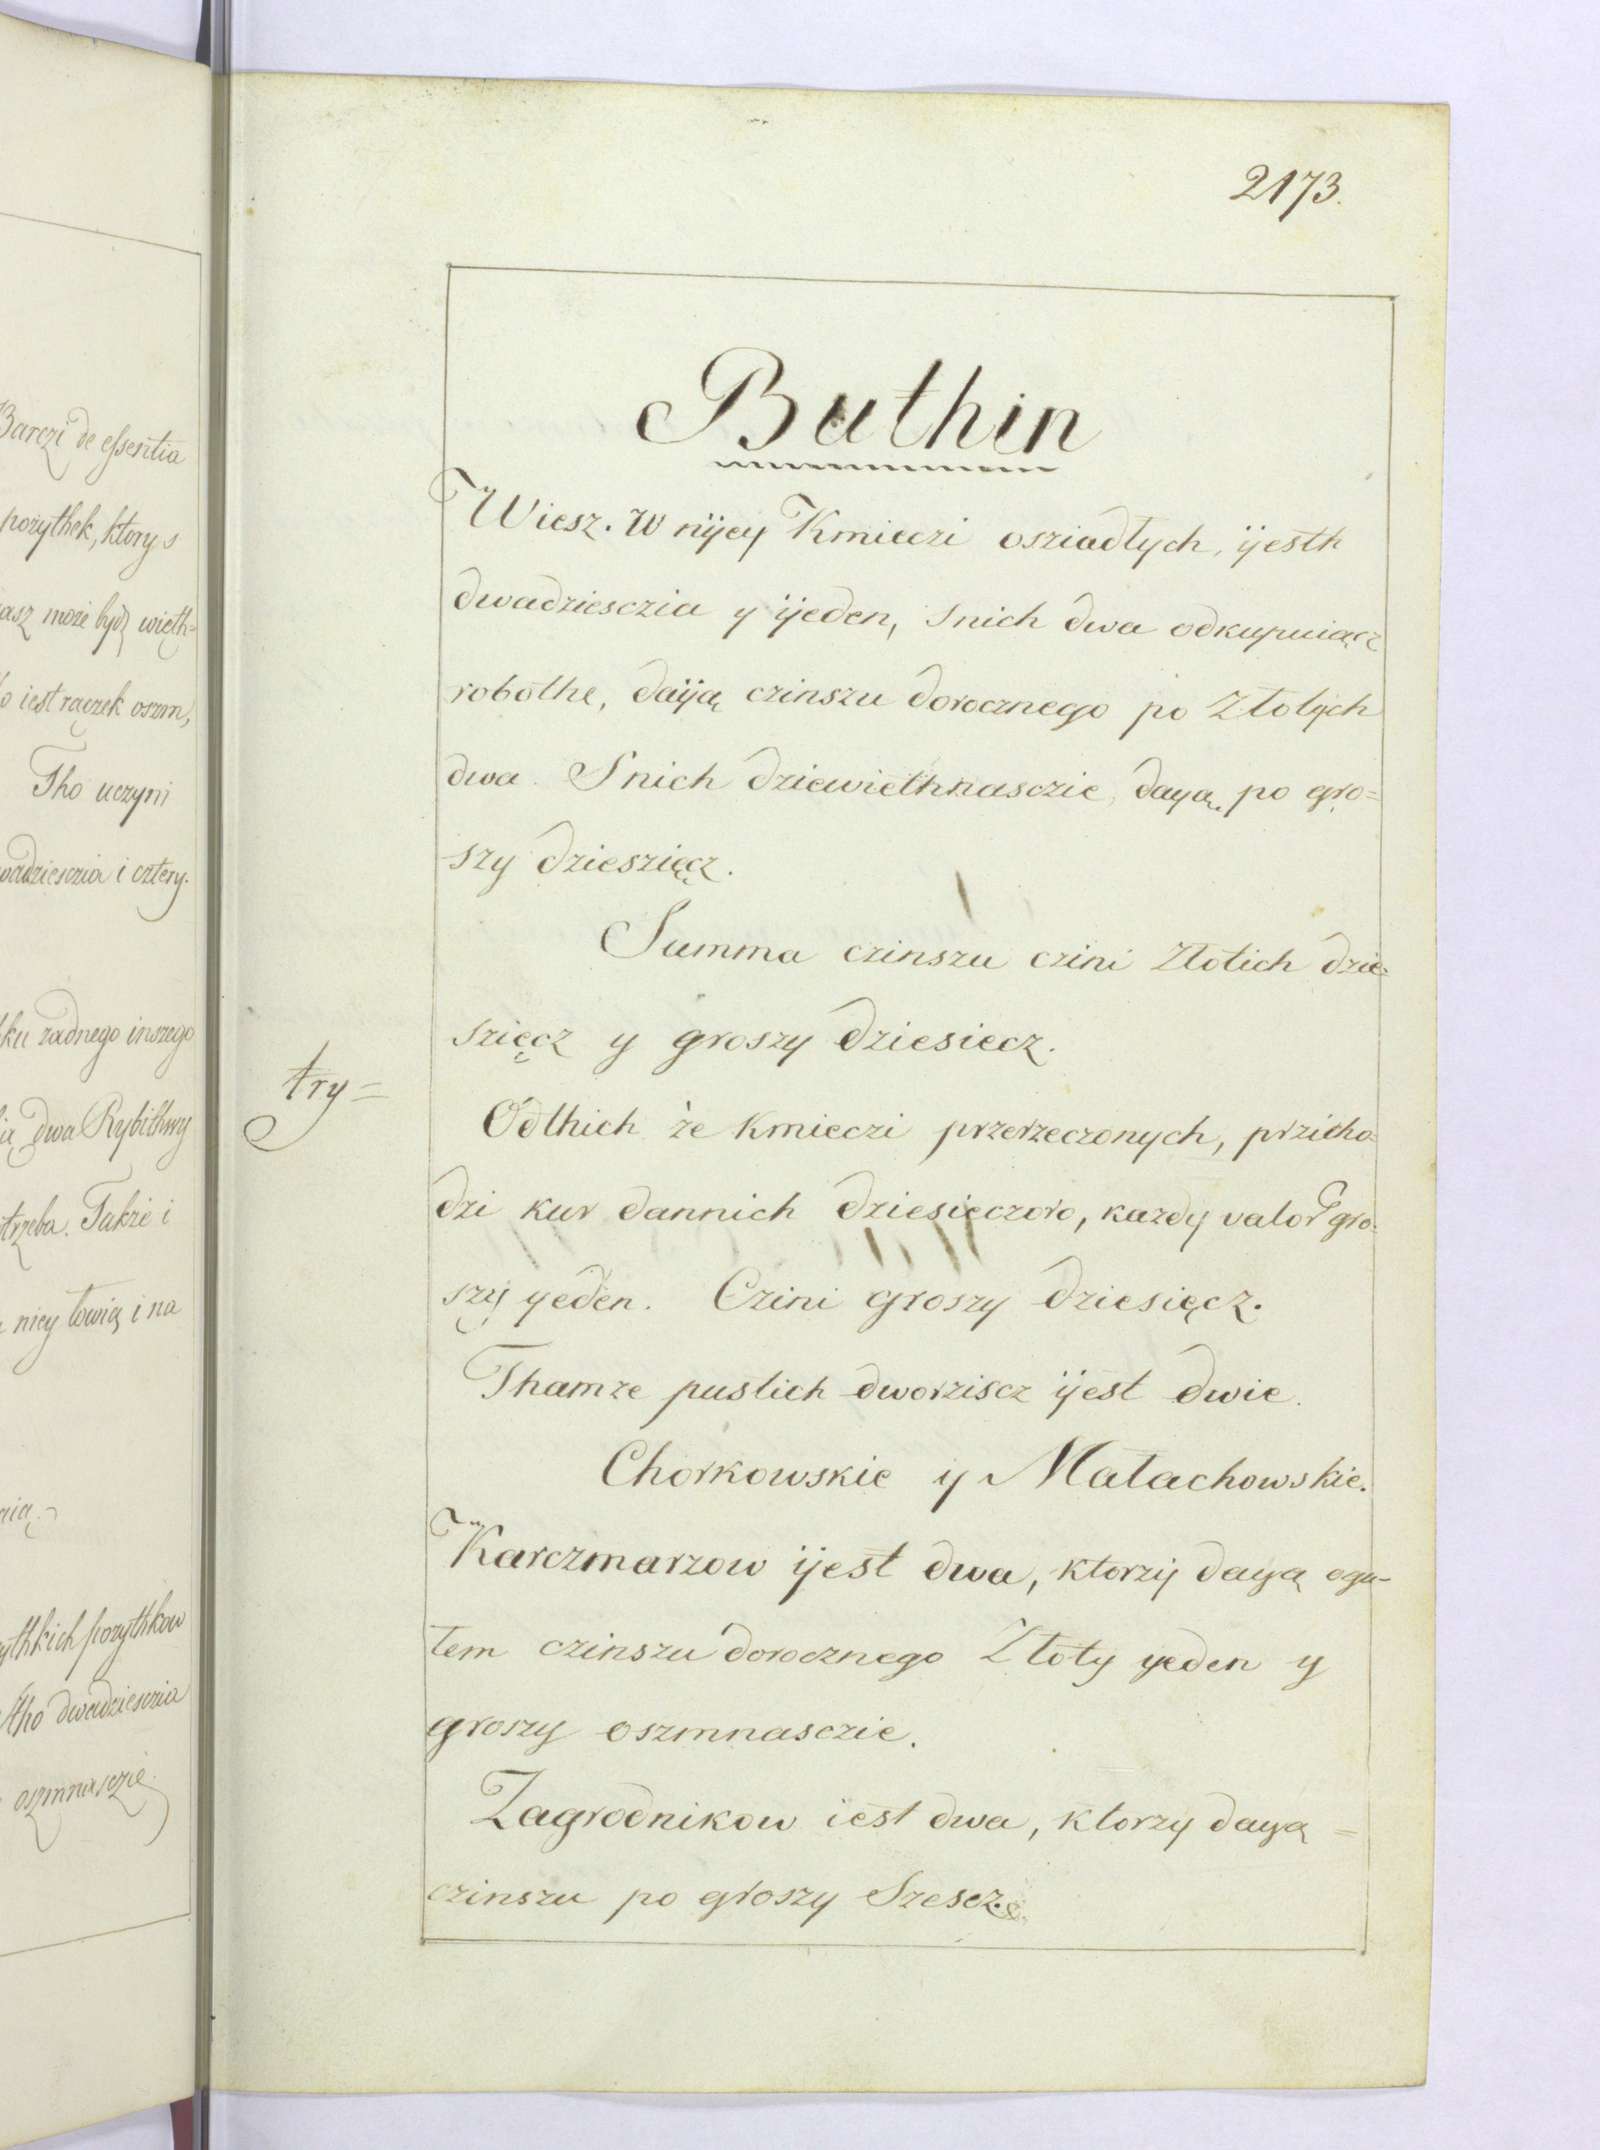 Barczi de essentia
pozythek, ktory s
asz może bydź wieth=
o iest rączek oszm,
Tho uczyni
wadziesczia i cztery.
ku zadnego inszego
ią dwa Rybithwy
trzeba. Takze i
niey łowią i na
nią.
ythkich pozythkow
tho dwadziesczia
oszmnasczie.
2173.
Buthin
Wiesz. W nÿey Kmieczi osziadłych, ÿesth
dwadziesczia y ÿeden, s nich dwa odkupuiącz
robothe, daÿą czinszu dorocznego po Złotÿch
dwa. S nich dziewiethnasczie, dayą, po gro=
szy dzieszięcz.
Summa czinszu czini Złotich dzie=
szięcz y groszy dziesiecz.
try=
Odthich że Kmieczi przerzeczonych, przicho=
dzi kur dannich dziesięczoro, kazdy valor gro=
szy yeden. Czini groszy dziesięcz.
Thamze pustich dworziscz ÿest dwie.
Chorkowskie y Małachowskie.
Karczmarzow ÿest dwa, ktorzÿ dayą ogu=
łem czinszu dorocznego Złoty yeden y
groszy oszmnasczie.
Zagrodnikow iest dwa, ktorzy dayą =
czinszu po groszy Szescz.